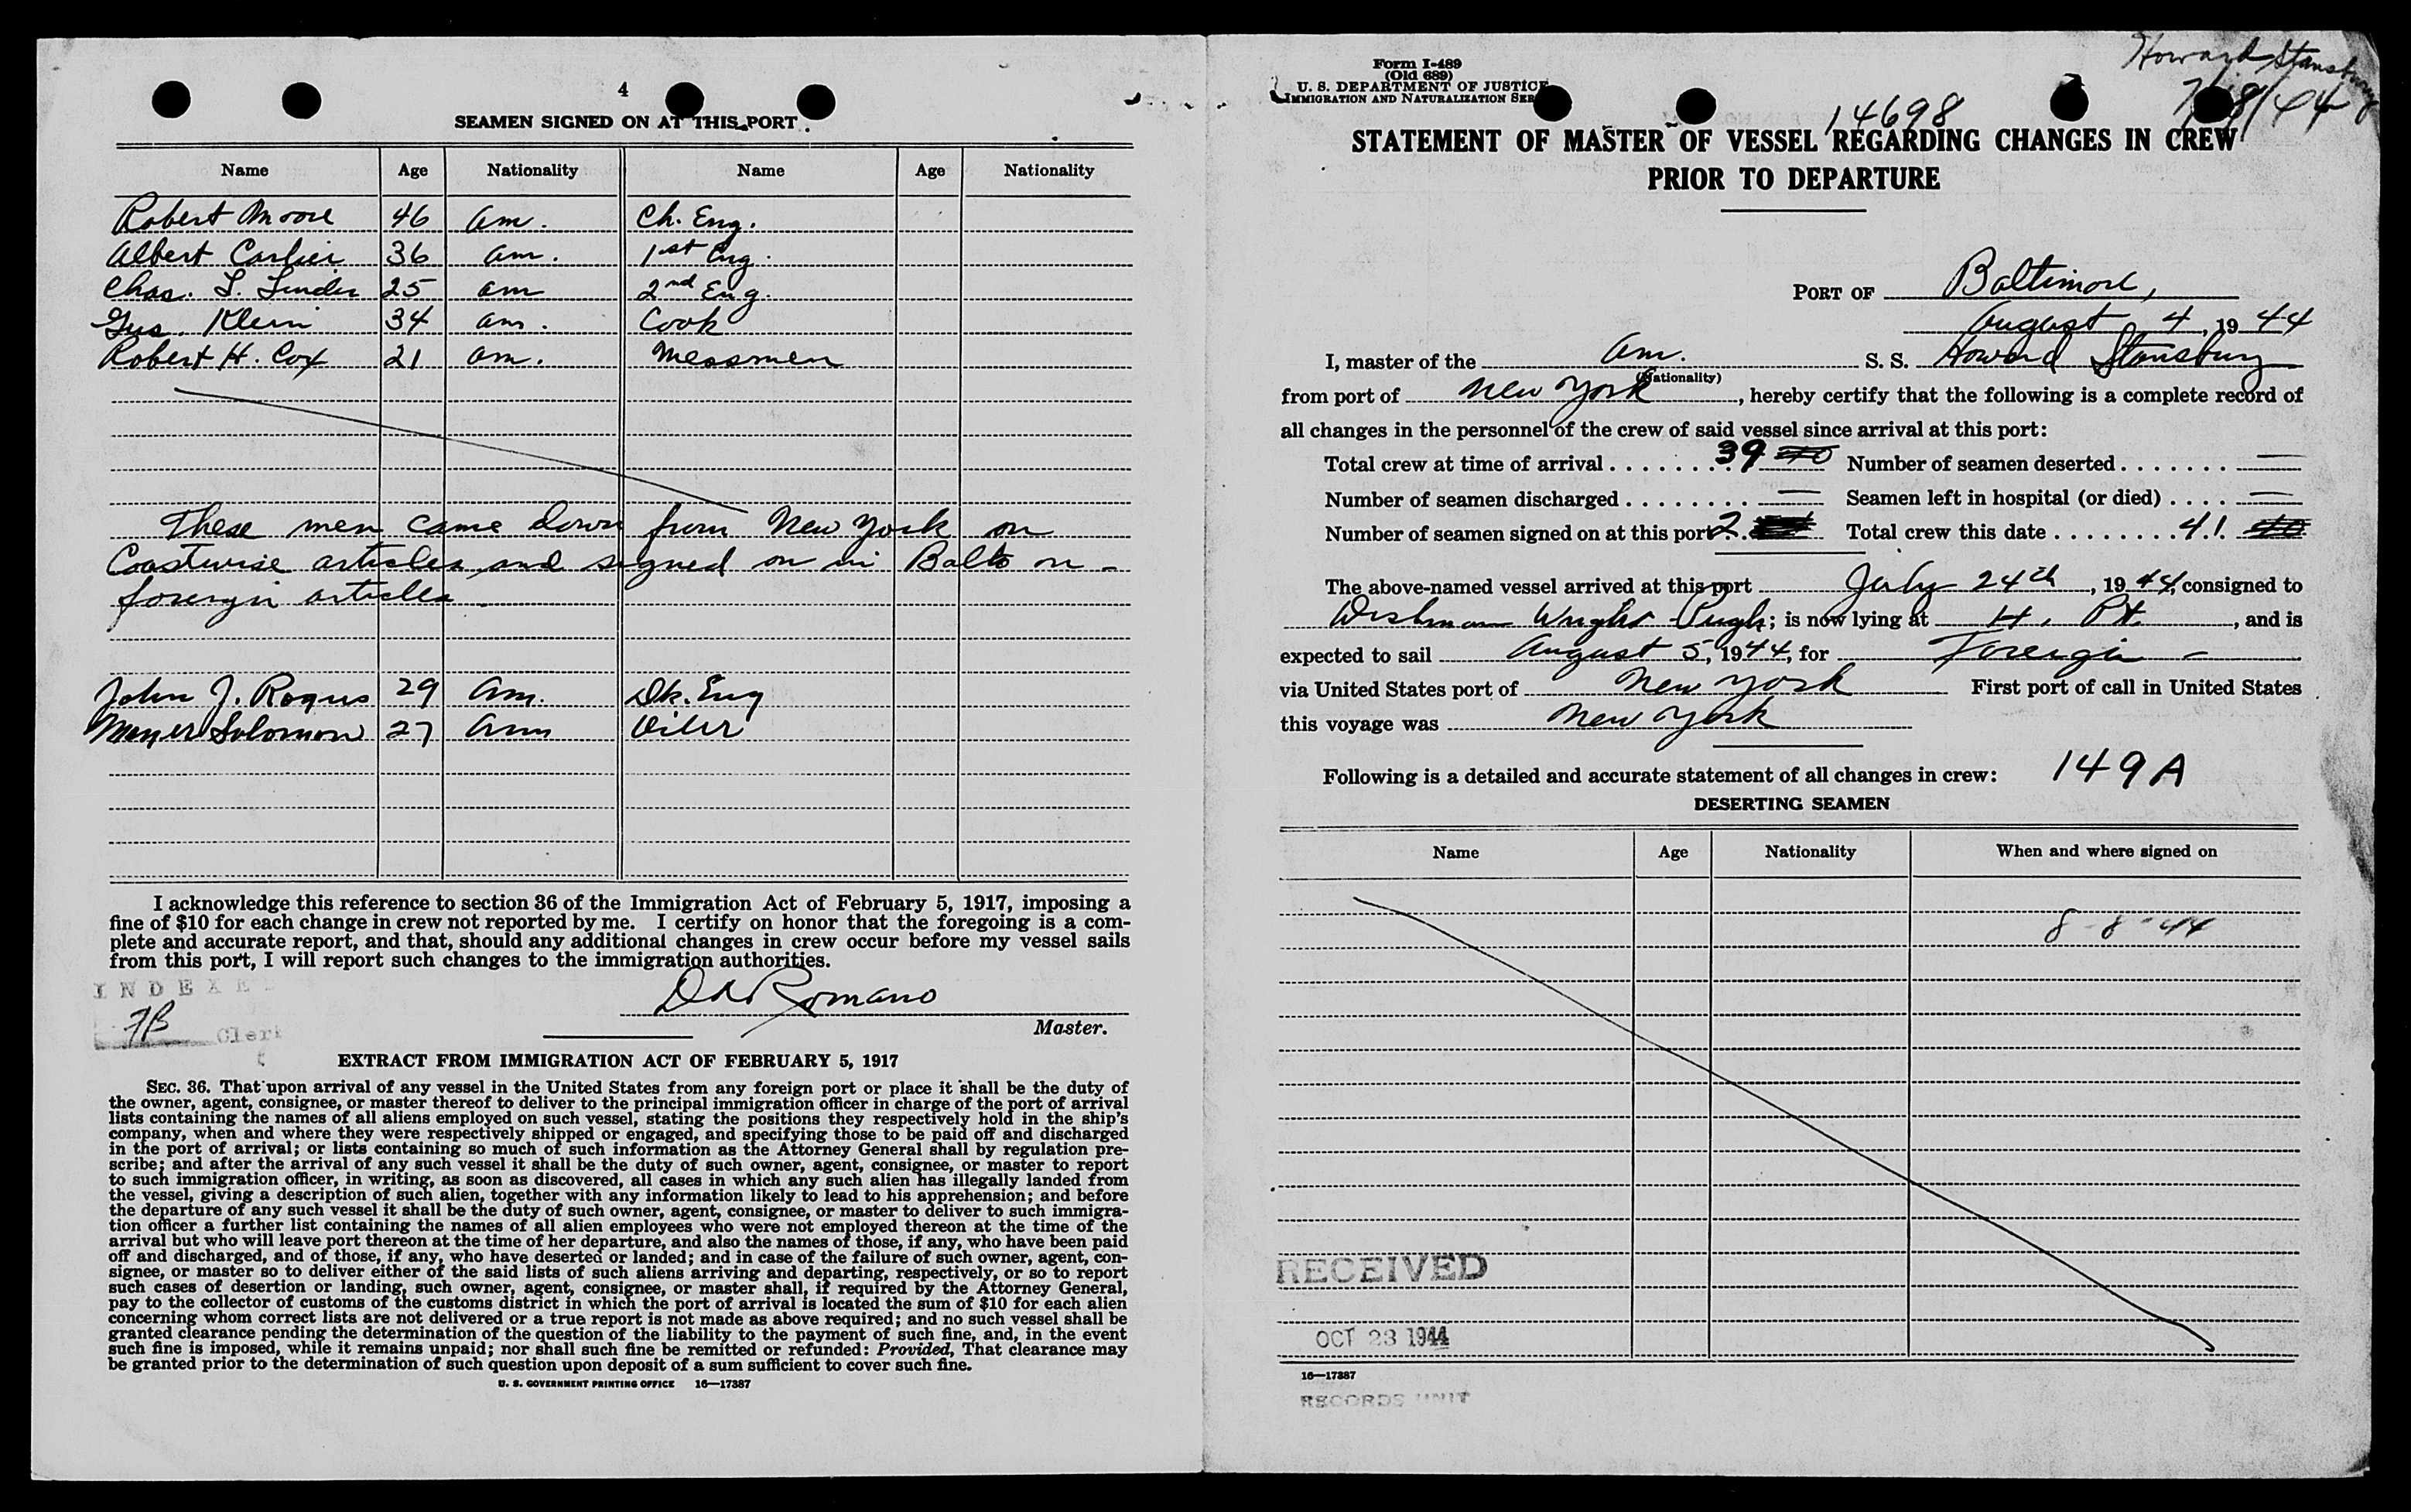 4
SEAMEN SIGNED ON AT THIS PORT
Name Age Nationality Name Age Nationality
Robert Moore 46 Am. Ch. Eng.
Albert Carlier 36 Am. 1st Eng.
Chas. L. Linder 25 Am 2nd Eng.
Gus. Klein 34 Am. Cook
Robert H. Cox 21 Am. Messmen
These men came down from New York on
Coastwise articles and signed on in Balto on -
foreign articles
John J. Rogus 29 Am. Dk. Eng
Meyer Solomon 27 Am Oiler
I acknowledge this reference to section 36 of the Immigration Act of February 5, 1917, imposing a
fine of $10 for each change in crew not reported by me. I certify on honor that the foregoing is a com-
plete and accurate report, and that, should any additional changes in crew occur before my vessel sails
from this port, I will report such changes to the immigration authorities.
INDEXE
Romano
Clerk
Master.
EXTRACT FROM IMMIGRATION ACT OF FEBRUARY 5, 1917
SEC. 36. That upon arrival of any vessel in the United States from any foreign port or place it shall be the duty of
the owner, agent, consignee, or master thereof to deliver to the principal immigration officer in charge of the port of arrival
lists containing the names of all aliens employed on such vessel, stating the positions they respectively hold in the ship's
company, when and where they were respectively shipped or engaged, and specifying those to be paid off and discharged
in the port of arrival; or lists containing so much of such information as the Attorney General shall by regulation pre-
scribe; and after the arrival of any such vessel it shall be the duty of such owner, agent, consignee, or master to report
to such immigration officer, in writing, as soon as discovered, all cases in which any such alien has illegally landed from
the vessel, giving a description of such alien, together with any information likely to lead to his apprehension; and before
the departure of any such vessel it shall be the duty of such owner, agent, consignee, or master to deliver to such immigra-
tion officer a further list containing the names of all alien employees who were not employed thereon at the time of the
arrival but who will leave port thereon at the time of her departure, and also the names of those, if any, who have been paid
off and discharged, and of those, if any, who have deserted or landed; and in case of the failure of such owner, agent, con-
signee, or master so to deliver either of the said lists of such aliens arriving and departing, respectively, or so to report
such cases of desertion or landing, such owner, agent, consignee, or master shall, if required by the Attorney General,
pay to the collector of customs of the customs district in which the port of arrival is located the sum of $10 for each alien
concerning whom correct lists are not delivered or a true report is not made as above required; and no such vessel shall be
granted clearance pending the determination of the question of the liability to the payment of such fine, and, in the event
such fine is imposed, while it remains unpaid; nor shall such fine be remitted or refunded: Provided, That clearance may
be granted prior to the determination of such question upon deposit of a sum sufficient to cover such fine.
U. S. GOVERNMENT PRINTING OFFICE 16—17387
Howard Stansbury
Form I-489
(Old 689)
U. S. DEPARTMENT OF JUSTICE
IMMIGRATION AND NATURALIZATION SER
14698
STATEMENT OF MASTER OF VESSEL REGARDING CHANGES IN CREW
PRIOR TO DEPARTURE
PORT OF Baltimore,
August 4, 1944
I, master of the Am. S. S. Howard Stansbury
(Nationality)
from port of New York, hereby certify that the following is a complete record of
all changes in the personnel of the crew of said vessel since arrival at this port:
Total crew at time of arrival 39 40 Number of seamen deserted —
Number of seamen discharged — Seamen left in hospital (or died) —
Number of seamen signed on at this port 2 Total crew this date 41 40
The above-named vessel arrived at this port July 24th, 1944, consigned to
Wright Pugh; is now lying at H. Pt., and is
expected to sail August 5, 1944, for Foreign -
via United States port of New York First port of call in United States
this voyage was New York
Following is a detailed and accurate statement of all changes in crew: 149A
DESERTING SEAMEN
Name Age Nationality When and where signed on
8-8-44
RECEIVED
OCT 23 1944
16—17387
RECORDS UNIT